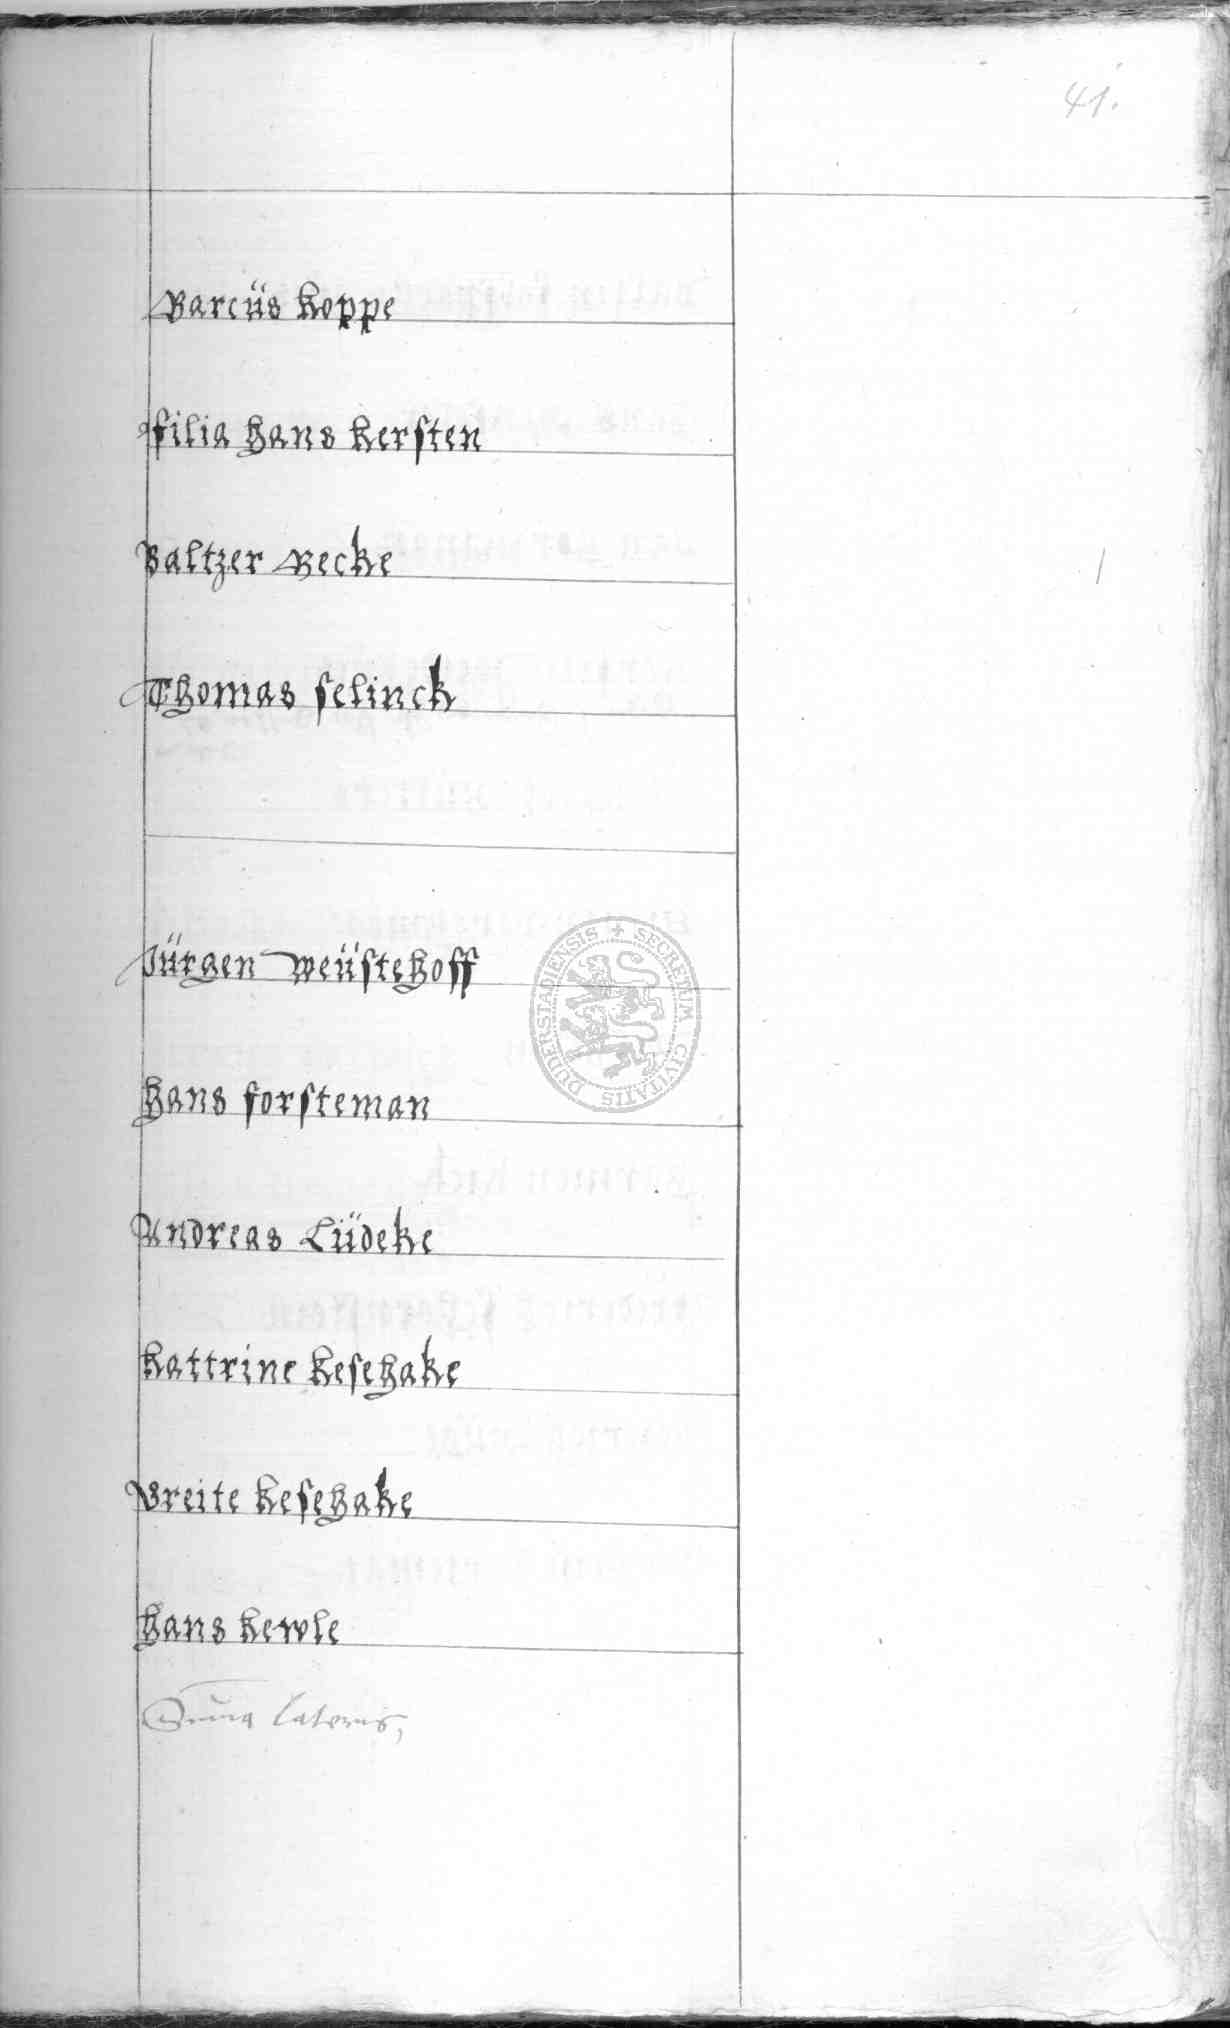 41.
Marcüs Koppe
filia Hans Kersten
Baltzer Becke
Thomas selinck
Jürgen Weüstehoff
DUDERSTADIENSIS + SECRETUM CIVITATIS
Hans forsteman
Andreas Lüdeke
Kattrine Kesehake
Breite Kesehake
Hans Kewle
Suma Lateris,